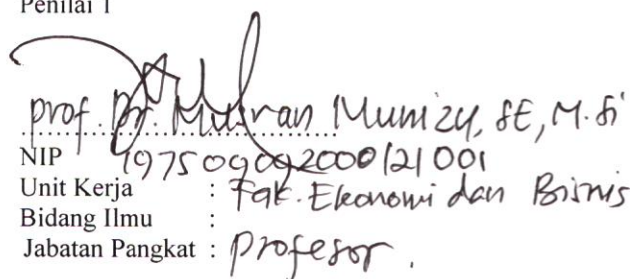 Penilai 1
Prof. Dr. Musran Munizu, SE, M.Si
NIP 197509092000121001
Unit Kerja : Fak. Ekonomi dan Bisnis
Bidang Ilmu :
Jabatan Pangkat : Profesor.